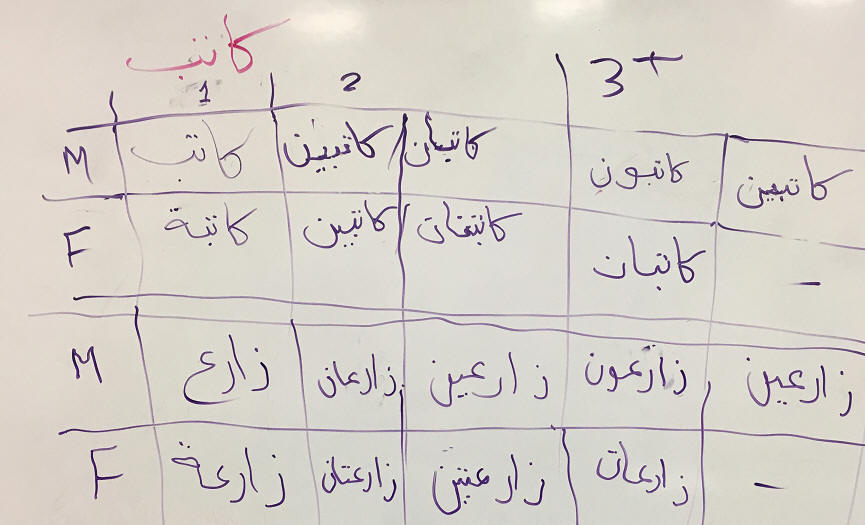 كاتب
1 2 3+
M كاتب كاتبين / كاتبان كاتبون كاتبين
F كاتبة كاتبين / كاتبتان كاتبان -
M زارع زارعان زارعين زارعون زارعين
F زارعة زارعتان زارعتين زارعات -